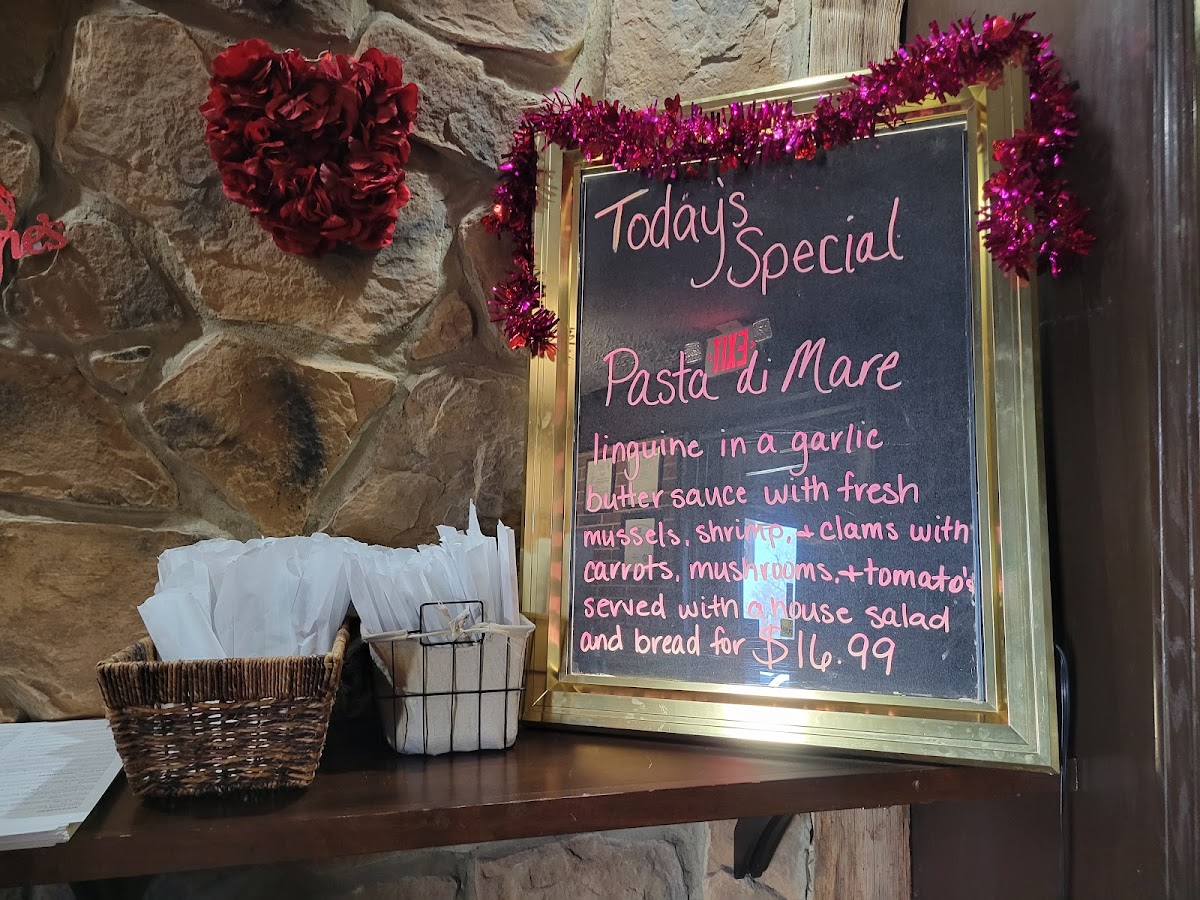 Today's
Special
EXIT
Pasta di Mare
linguine in a garlic
butter sauce with fresh
mussels, shrimp, + clams with
carrots, mushrooms, + tomato's
served with a house salad
and bread for $16.99